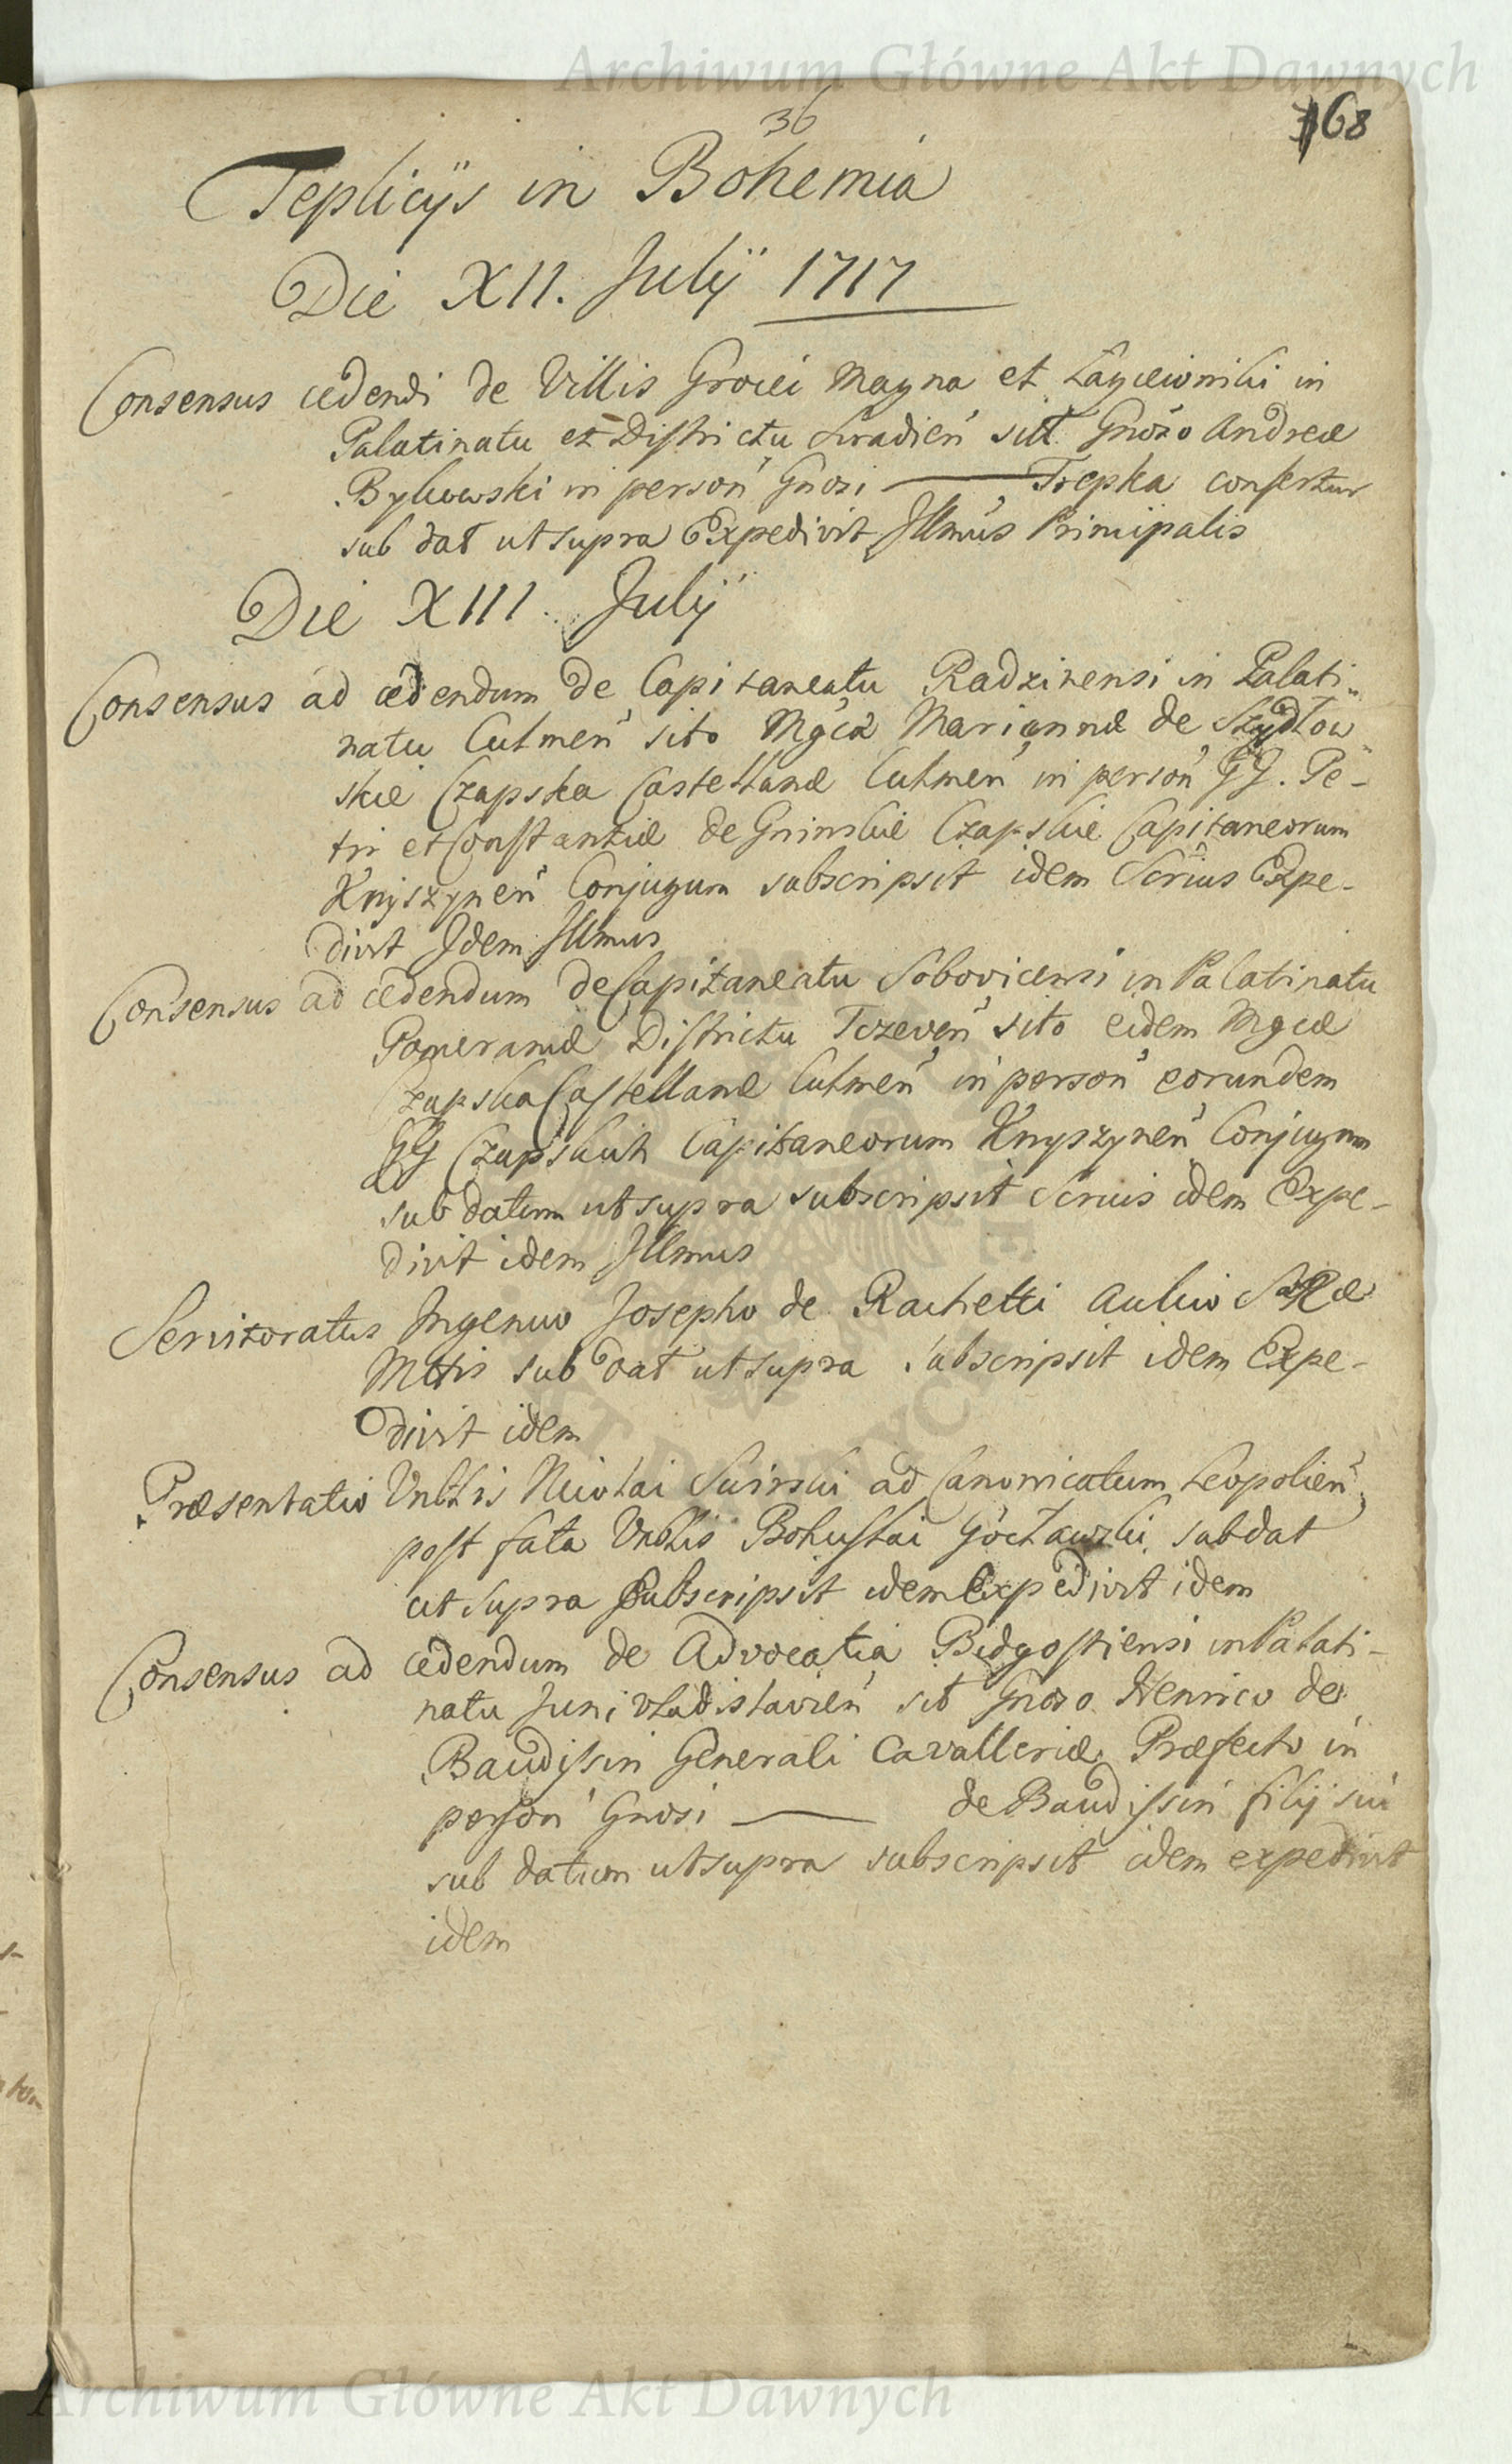 Archiwum Główne Akt Dawnych
36
168
Teplicijs in Bohemia
Die XII. Julij 1717
Consensus cedendi de Villis Groici Magna et Łagiewniki in
Palatinatu et Districtu Siradień sitt Gnoso Andreæ
Bykowski in person Gnosi — Trepka confertur
sub dat ut supra Expedivit Illmus Principalis
Die XIII. Julij
Consensus ad cedendum de Capitaneatu Radzinensi in Palati-
natu Culmeń sito Mgcæ Mariannæ de Szydłow
skie Czapska Castellanæ Culmeń in person GG. Pe-
tri et Constantiæ de Gninskie Czapskie Capitaneorum
Knyszyneń Conjugum subscripsit idem Sermus Expe-
divit Idem Illmus
Consensus ad cedendum de Capitaneatu Sobovicensi in Palatinatu
Pomeraniæ Districtu Tczeveń sito eidem Mgcæ
Czapska Castellanæ Culmeń in person eorundem
GG Czapskich Capitaneorum Knyszyneń Conjugum
sub datum ut supra subscripsit Sermus idem Expe-
divit idem Illmus
Servitoratus Ingenuo Josepho de Rachetti Aulico Sacræ
Mttis sub dat ut supra subscripsit idem Expe-
divit idem
Præsentatio Vnblis Nicolai Suirski ad Canonicatum Leopolień
post fata Vnblis Bohuslai sub dat
ut supra Subscripsit idem Expedivit idem
Consensus ad cedendum de Advocatia Bidgostiensi in Palati-
natu Juni Vladislavień sit Gnoso Henrico de
Baudissin Generali Cavalleriæ Præfecto in
person Gnosi — de Baudissin filij sui
sub datum ut supra subscripsit idem expedivit
idem
Archiwum Główne Akt Dawnych